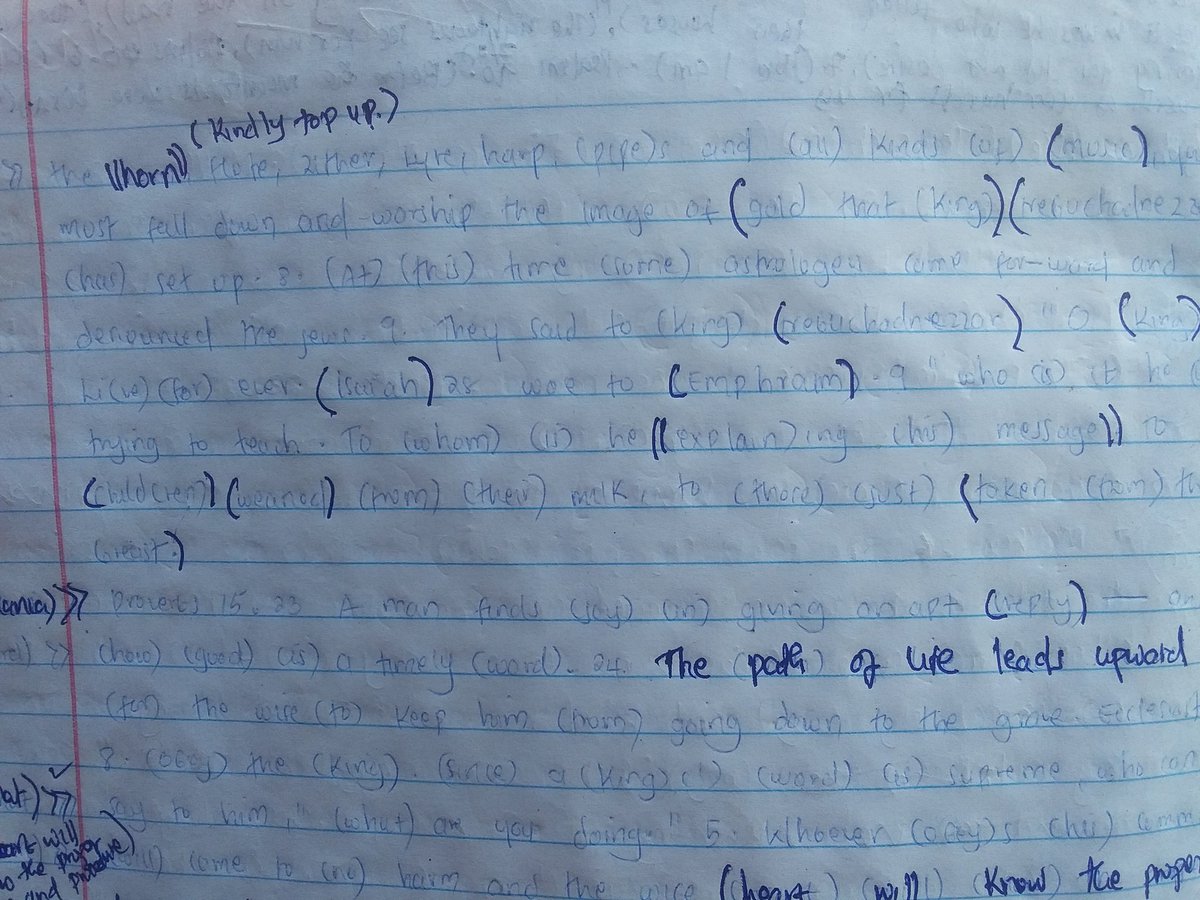 (Kindly top up.)
>> the ((horn)) flote, zither, lyre, harp, (pipe)s and (all) kinds (of) (music),
most fall down and worship the image of (gold that (King)) (nebuchadnezz
(has) set up. 8. (At) (this) time (some) astrologers came for-word and
denounced the jews. 9. They said to (King) (nebuchadnezzor) "O (King)
Li(ve) (for) ever. (isaiah) 28 woe to (Emphraim). 9 "who (is) it he
trying to teach. To (whom) (is) he ((explain)ing (his) message)) To
(child(ren)) (weaned) (from) (their) milk, to (those) (just) (taken (from) th
(breast.)
>> Proverbs 15. 23 A man finds (joy) (in) giving an apt (reply) — an
>> (how) (good) (is) a timely (word). 24. The (path) of life leads upward
(for) the wise (to) keep him (from) going down to the grave.
8. (Obey) the (King). (since) a (King)(')s (word) (is) supreme, who can
say to him, "(what) are you doing." 5. Whoever (obey)s (his) comm
come to (no) harm and the wise (heart) (will) (know) the proper
will
to the proper
and procedure)